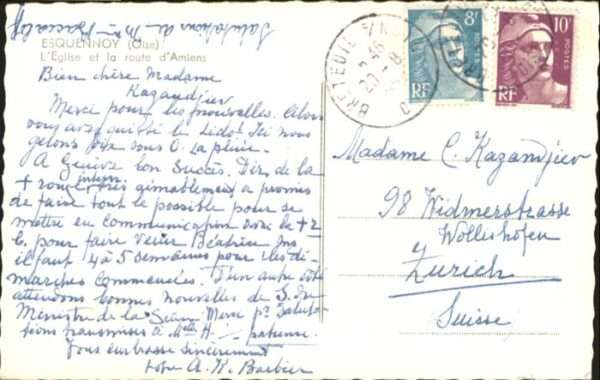 Salutations à Mme
ESQUENNOY (Oise)
L'Eglise et la route d'Amiens
Bien chère Madame
Kazandjiev
Merci pour les nouvelles. Alors
vous avez quitté le Lido. Ici nous
gelons
A Genève bon succès. Dir. de la
+ rouge intern. très aimablement a promis
de faire tout le possible pour se
mettre en communication avec la +
pour faire venir Béatrice
il faut 4 à 5 semaines pour les dé-
marches commencées. D'un autre côté
attendons bonnes nouvelles de
Ministre de la Merci pr Saluta-
tions transmises à Mlle H. patience.
Vous embrasse sincèrement
A. K. Barbier
BRETEUIL
20 - 8
8F
RF
10F
POSTES
RF
Madame C. Kazandjiev
98 Widmerstrasse
Wollishofen
Zurich
Suisse